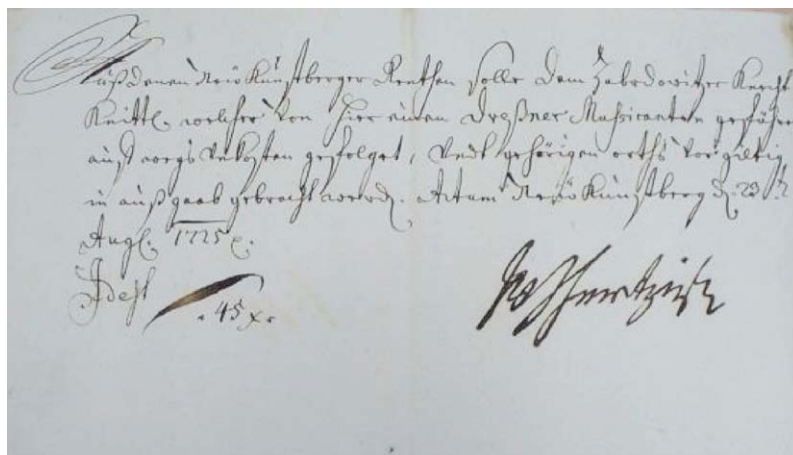 Auß denen Neü Künstberger Renthen solle dem Zabrdowitzer Knecht
Knittl. welcher von hier einen Dreßner Musicanten geführet
auff wegs Unkosten gefolget, Undt gehörigen orths vor giltig
in außgaab gebracht werd. Actum Neü Künstberg d. 23
Aug. 1725
Idest
45 x.